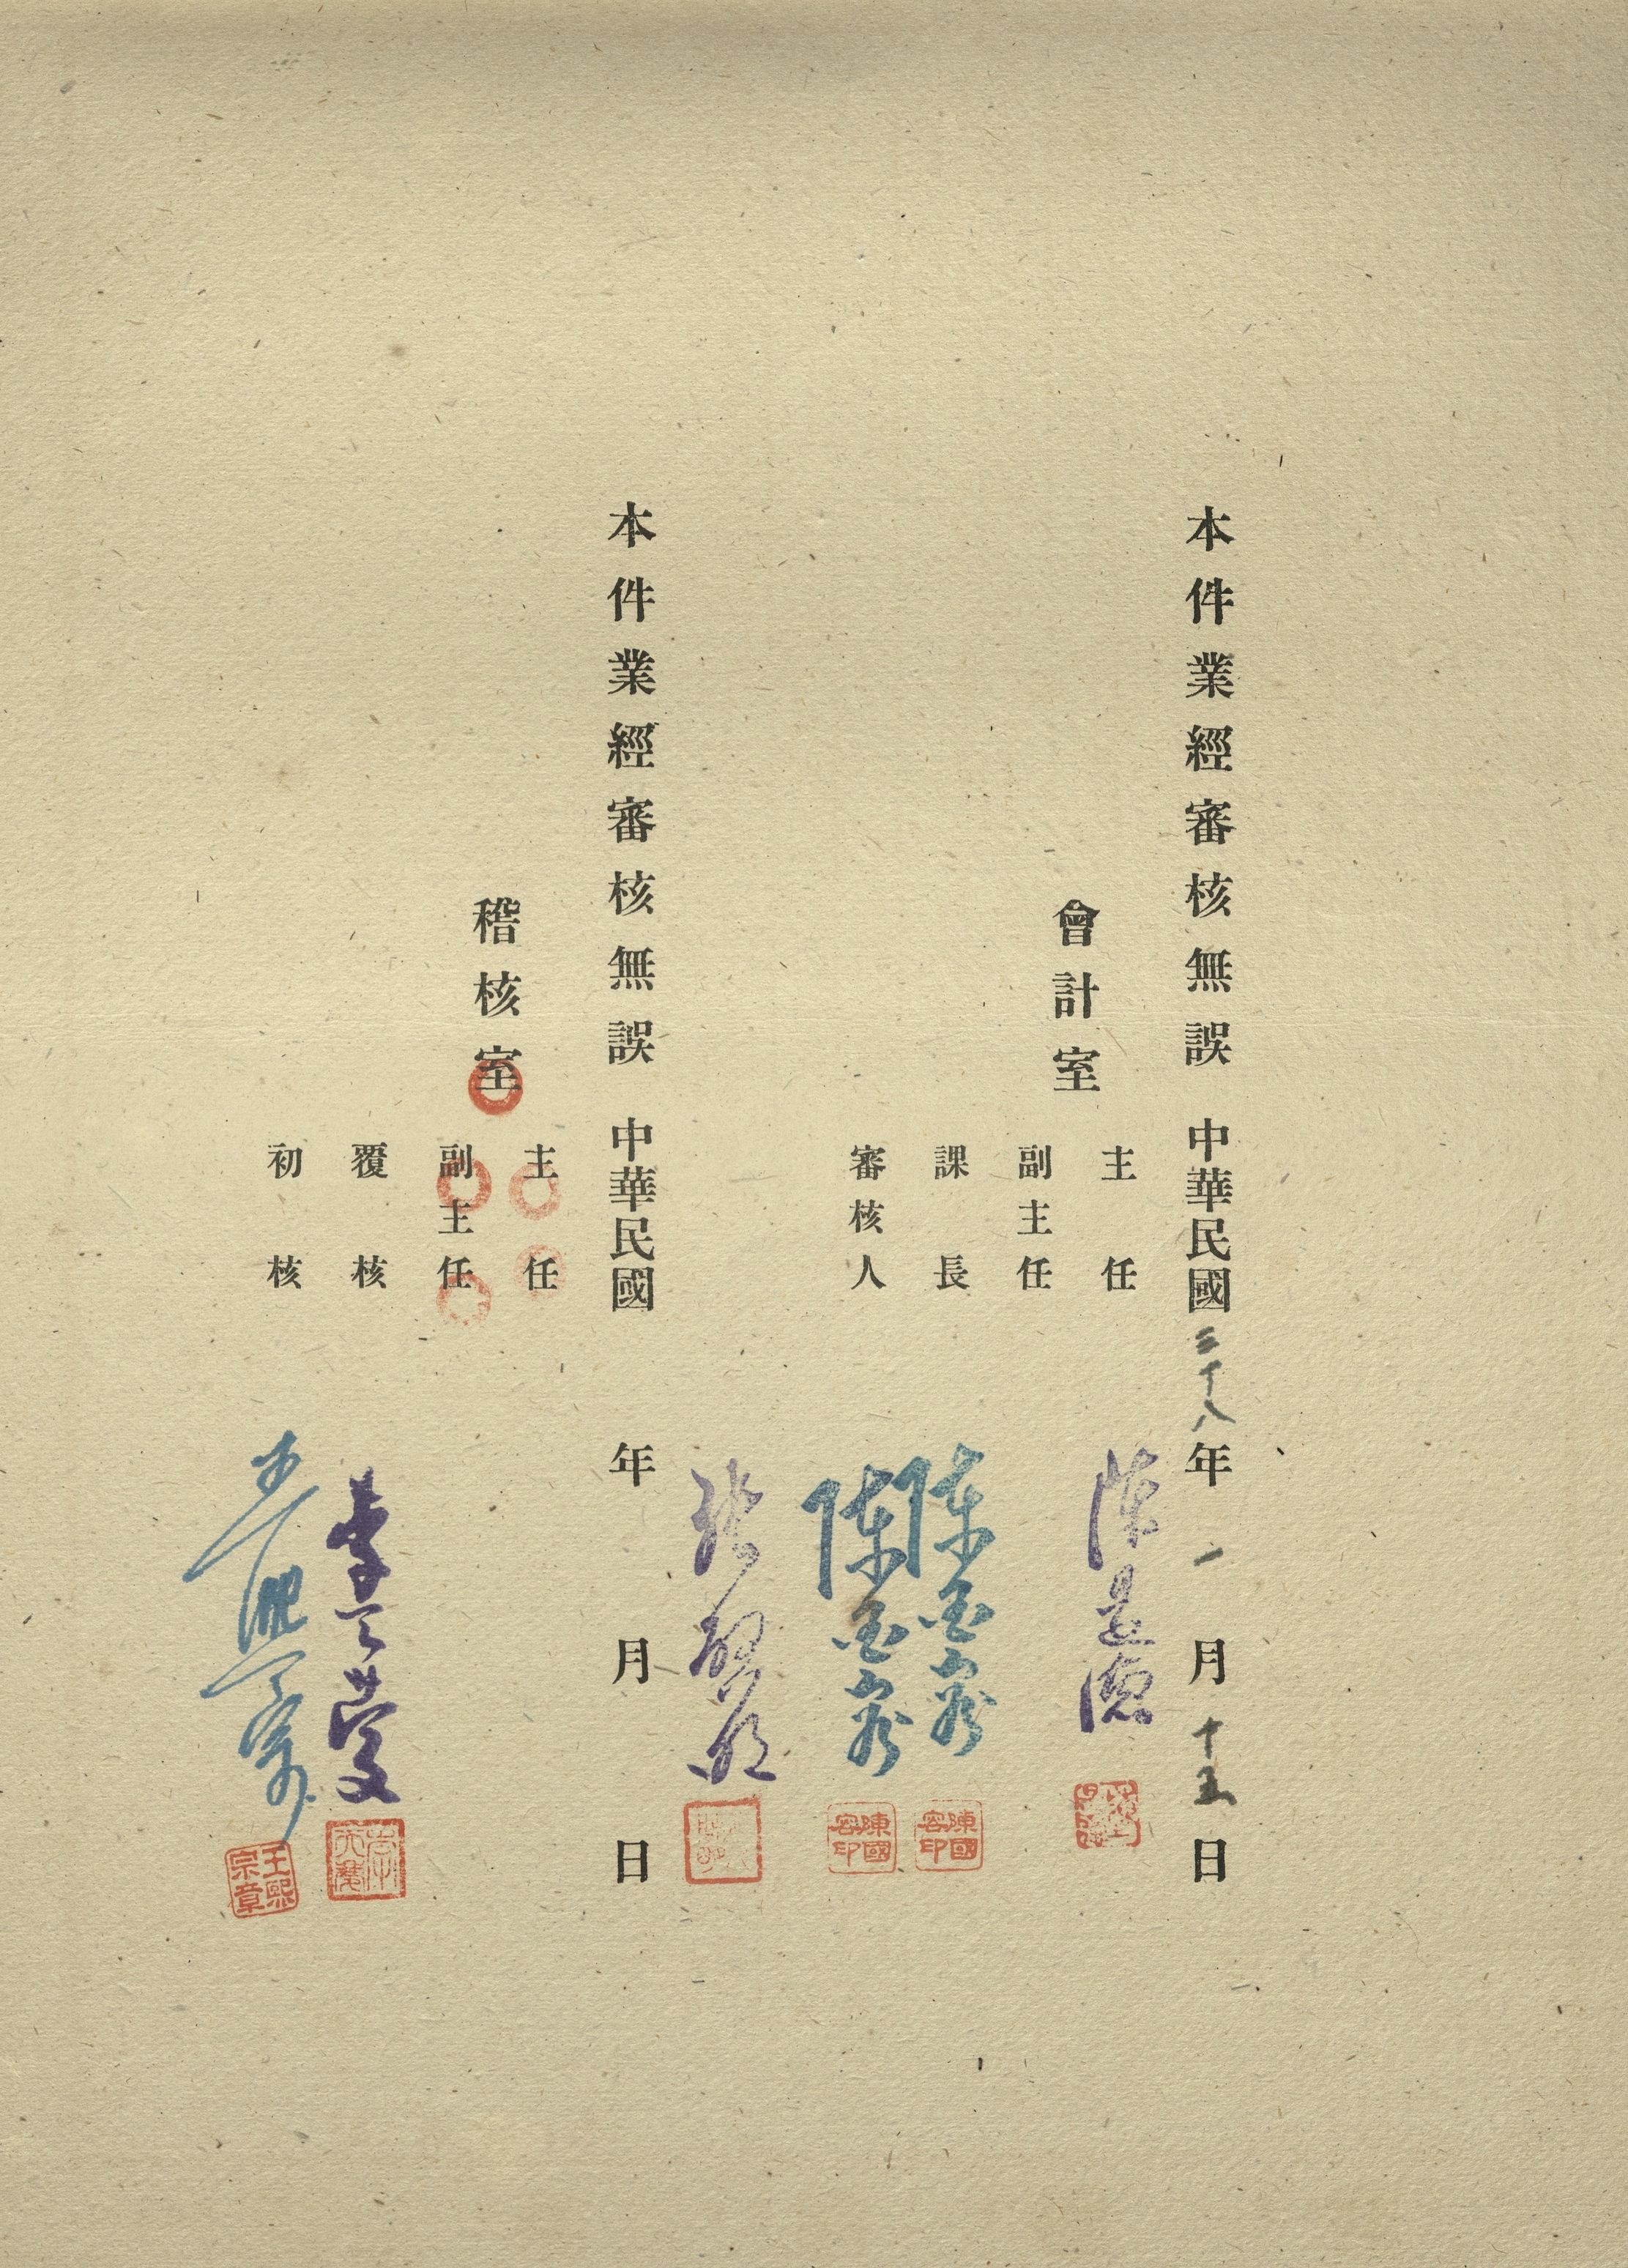 本件業經審核無誤 中華民國三十八年一月十五日
會計室
主任
副主任
課長 陳國容
陳國容印
審核人 陳國容
陳國容印
本件業經審核無誤 中華民國 年 月 日
稽核室
主任
副主任
覆核
初核 王熙宗
王熙宗章